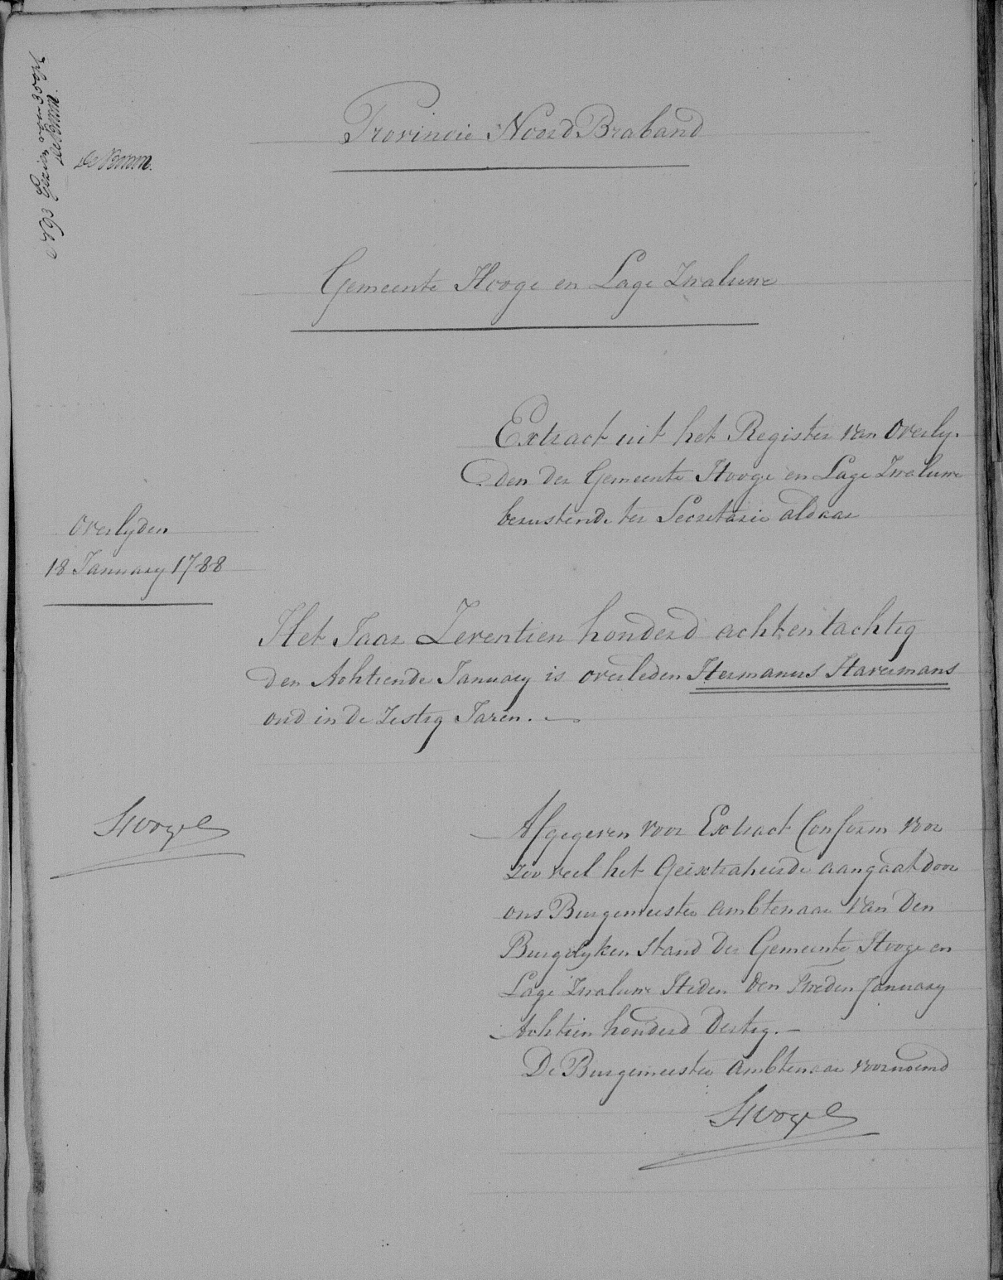 Provincie Noord Braband
Gemeente Hooge en Lage Zwaluwe
Extract uit het Register van Overly-
den der Gemeente Hooge en Lage Zwaluwe
berustende ter Secretarie aldaar
Overlyden
18 January 1788
Het Jaar Zeventien honderd achtentachtig
den Achtiende January is overleden Hermanus Havermans
oud in de Zestig Jaren.
Afgegeven voor Extract Conform voor
zoo veel het Geëxtraheerde aangaat door
ons Burgemeester Ambtenaar van Den
Burgelyken Stand der Gemeente Hooge en
Lage Zwaluwe Heden den Tweden January
Achtien honderd Dertig.
De Burgemeester Ambtenaar voornoemd